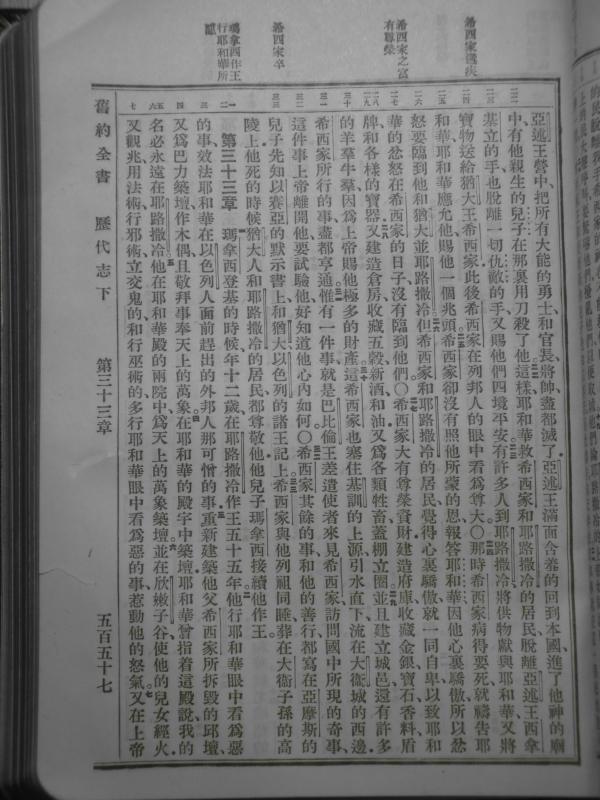 希西家遘疾
希西家之富
有尊榮
希西家卒
瑪拿西作王
行耶和華所
惡
亞述王營中、把所有大能的勇士、和官長將帥、盡都滅了、亞述王滿面含羞的回到本國、進了他神的廟
中、有他親生的兒子、在那裏用刀殺了他、這樣、耶和華救希西家和耶路撒冷的居民、脫離亞述王西拿
基立的手、也脫離一切仇敵的手、又賜他們四境平安、有許多人到耶路撒冷、將供物獻與耶和華、又將
寶物送給猶大王希西家、此後希西家在列邦人的眼中看爲尊大〇那時希西家病得要死、就禱告耶
和華、耶和華應允他、賜他一個兆頭、希西家卻沒有照他所蒙的恩報答耶和華、因他心裏驕傲、所以忿
怒要臨到他、和猶大並耶路撒冷、但希西家和耶路撒冷的居民、覺得心裏驕傲、就一同自卑、以致耶和
華的忿怒在希西家的日子、沒有臨到他們〇希西家大有尊榮貲財、建造府庫、收藏金銀、寶石、香料、盾
牌、和各樣的寶器、又建造倉房、收藏五穀、新酒、和油、又爲各類牲畜蓋棚立圈、並且建立城邑、還有許多
的羊羣牛羣、因爲上帝賜他極多的財產、這希西家也塞住基訓的上源、引水直下流在大衞城的西邊、
希西家所行的事、盡都亨通、惟有一件事、就是巴比倫王差遣使者來見希西家、訪問國中所現的奇事、
這件事上帝離開他、要試驗他、好知道他心內如何〇希西家其餘的事、和他的善行、都寫在亞摩斯的
兒子先知以賽亞的默示書上、和猶大以色列的諸王記上、希西家與他列祖同睡、葬在大衞子孫的高
陵上、他死的時候、猶大人和耶路撒冷的居民、都尊敬他、他兒子瑪拿西接續他作王、
第三十三章 瑪拿西登基的時候、年十二歲、在耶路撒冷作王五十五年、他行耶和華眼中看爲惡
的事、效法耶和華在以色列人面前趕出的外邦人、那可憎的事、重新建築他父希西家所拆毀的邱壇、
又爲巴力築壇、作木偶、且敬拜事奉天上的萬象、在耶和華的殿宇中築壇、耶和華曾指着這殿說、我的
名必永遠在耶路撒冷、他在耶和華殿的兩院中、爲天上的萬象築壇、並在欣嫩子谷使他的兒女經火、
又觀兆、用法術、行邪術、立交鬼的、和行巫術的、多行耶和華眼中看爲惡的事、惹動他的怒氣、又在上帝
舊約全書 歷代志下 第三十三章 五百五十七